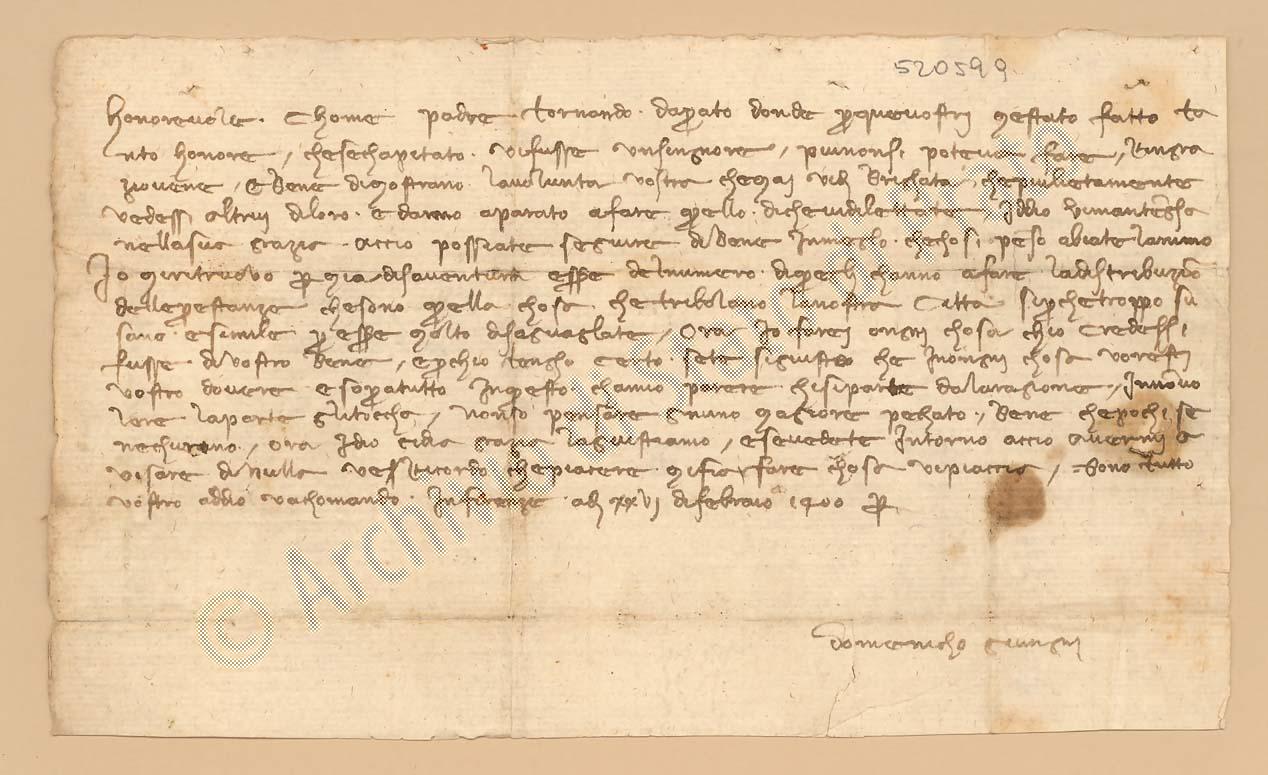 520599
honorevole. chome padre tornando. daprato donde p que vostri mestato fatto ta
nto honore / chesechapitato. vifusse unsingnore / piunonsi poteva fare / Ringra
ziovene / E bene dimostrano lavolunta vostra chemai vidi brighata chepiulietamente
vedessi altrui diloro. e danno aparato afare quello. dichevidilettate / Iddio vimantengha
nellasua grazia. accio possiate seguire dibene Inmeglo. chechosi penso abiate lanimo
Io miritruovo p mia disaventura esse delnumero. diquegli channo afare ladistribuzio
delleprestanze chesono quella chosa che tribolano lanostra Citta siperchetroppo su
sano e simile p esse molto disaguaglate / Ora Io farei ongni chosa chio credessi
fusse di vostro bene / eperchio tengho certo sete sigiusto che Inongni chosa vorresti
vostro dovere e sopratutto Inquesto chamio parere chisiparte dalaragione / Innovo
lere laparte glitoccha / nonso pensare gniuno magiore pechato / bene chepochi se
nechurono / Ora Idio cidia grazia lagiustiamo / esevedete Intorno accio avermi a
visare dinulla vel Ricordo chepiacere mifia fare chosa vipiaccia / Sono tutto
vostro addio vachomando. Infirenze adi xxvi difebraio 1400 p
domenicho giungni
© Archivio di Stato di Prato